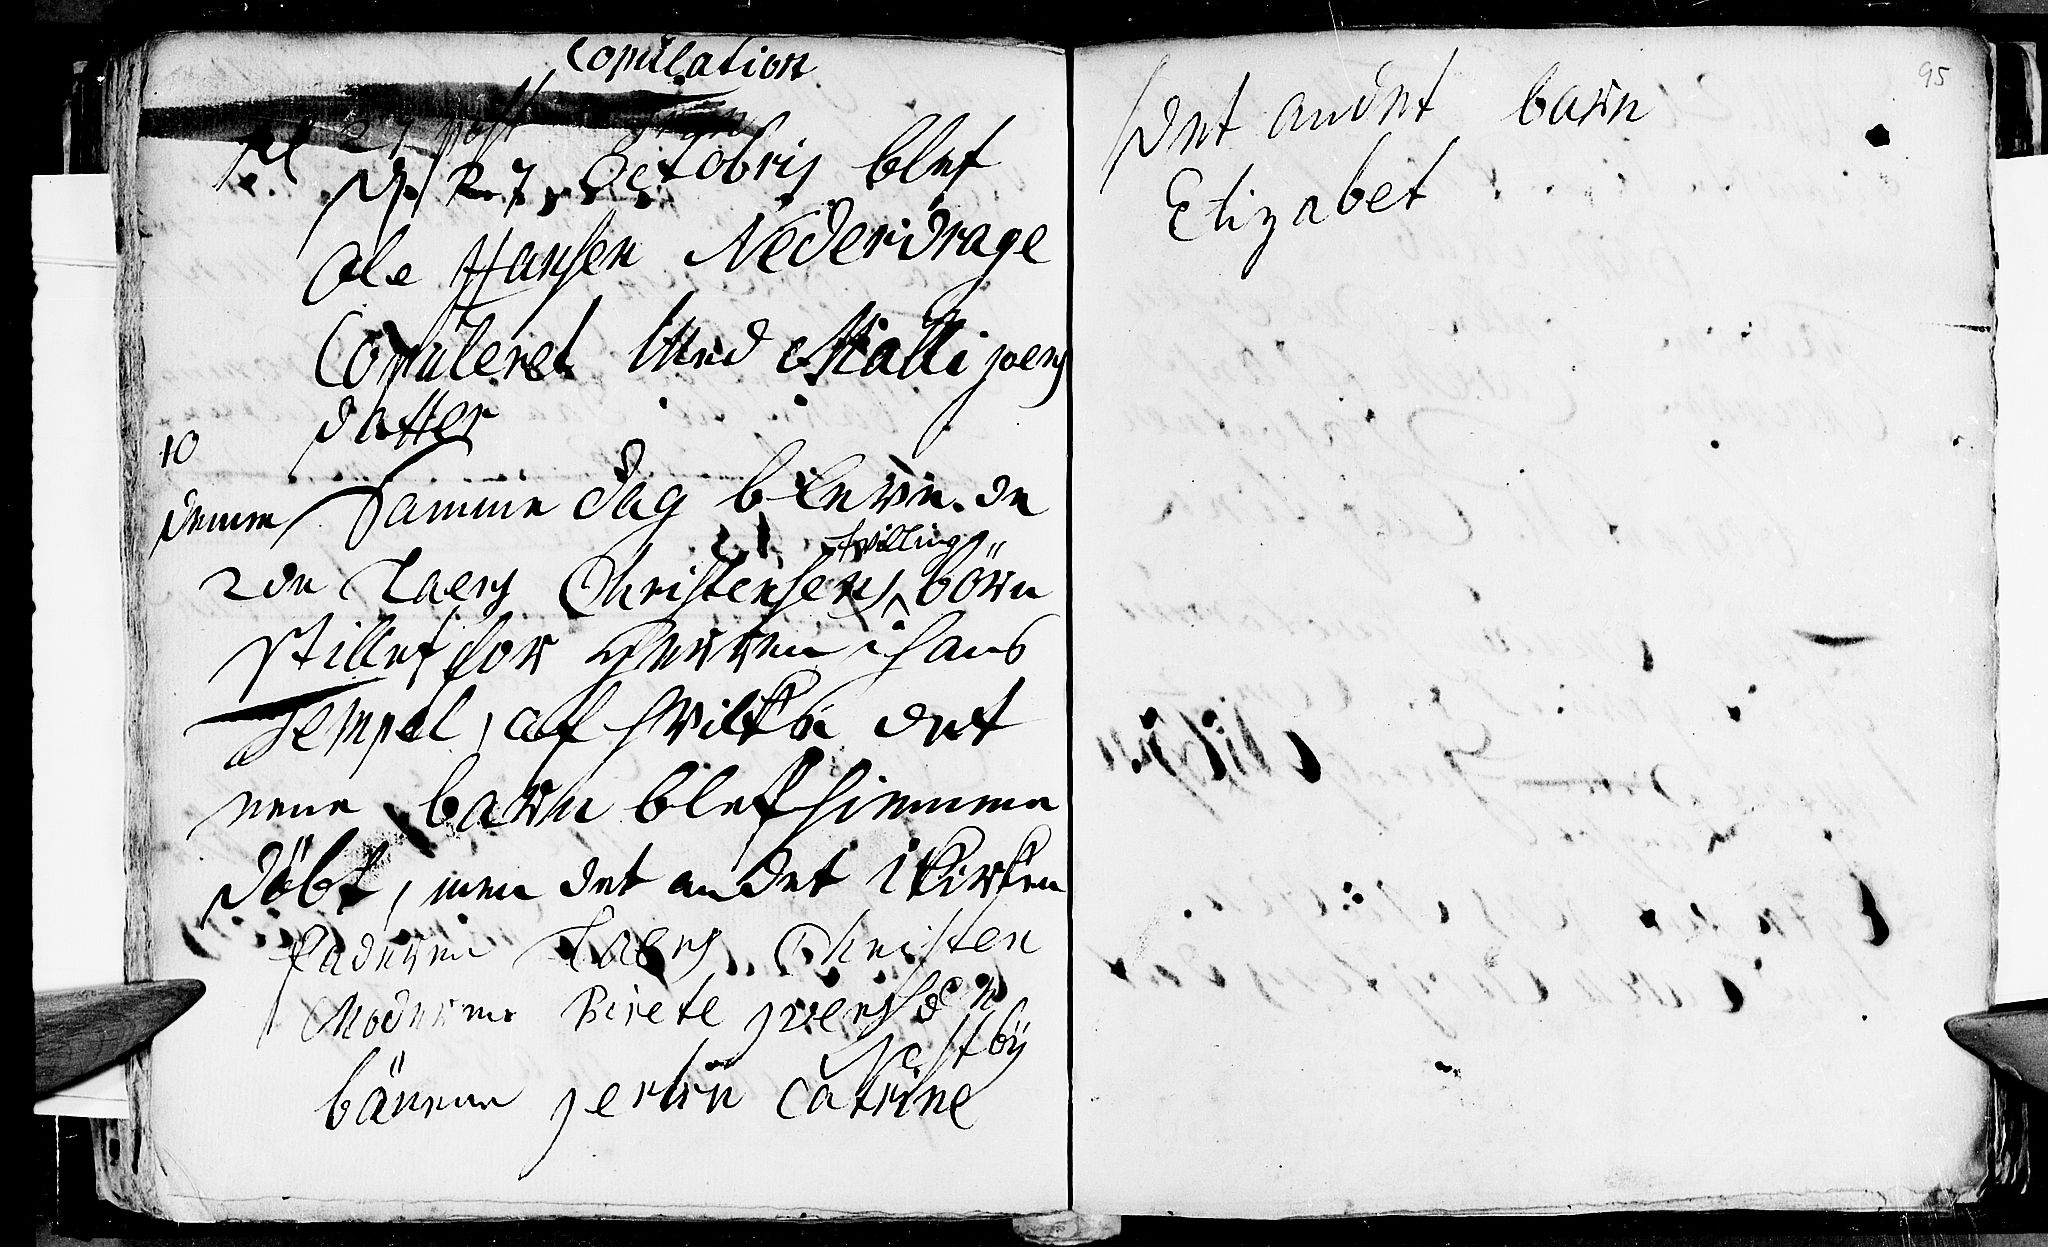 Copulation
d. 27 Octobris blef
Ole Hansen Nederdrage
Copuleret Med Malli joens
datter
10
denne Samme dag blewe de
tvilling
2de Laers Christensens börn
stillet for Herren i hans
Tempel, af hvilke det
ene barn blef hiemme
döbt, men det andet i kirken
Faderen Laers Christen
Moderen Birete joensd
Festbÿ
bäname Catrine
95
Det andet barn
Elizabet